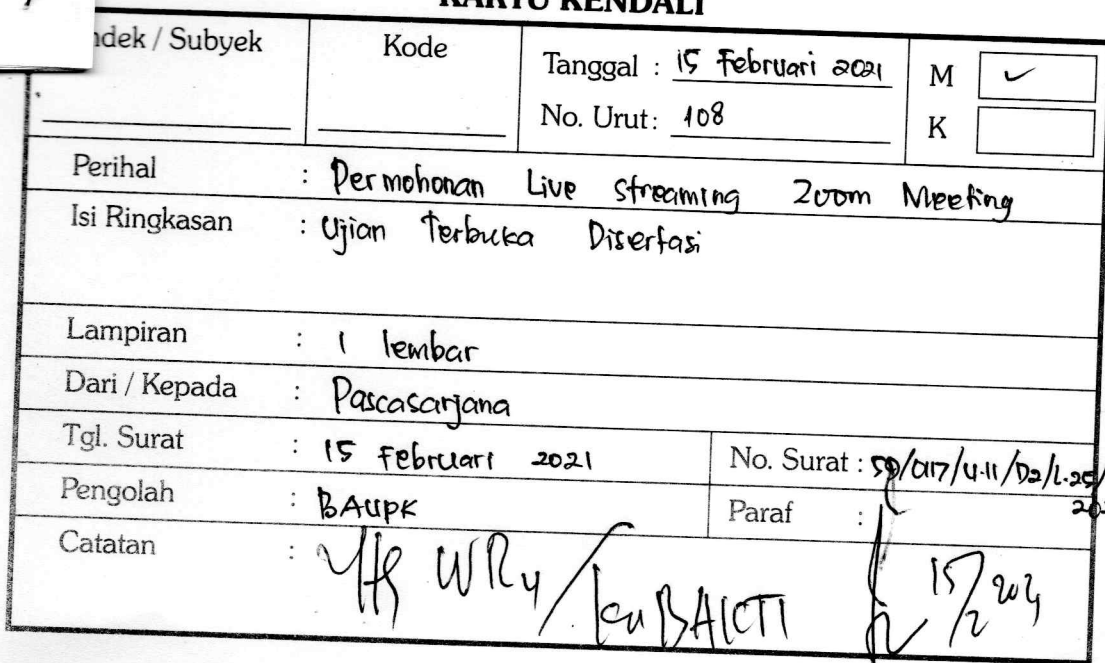 KARTU KENDALI
ndek / Subyek
Kode
Tanggal : 15 Februari 2021
No. Urut : 108
M ✓
K
Perihal : Permohonan Live Streaming Zoom Meeting
Isi Ringkasan : Ujian Terbuka Disertasi
Lampiran : 1 lembar
Dari / Kepada : Pascasarjana
Tgl. Surat : 15 Februari 2021
No. Surat :
Pengolah : BAUPK
Paraf :
Catatan : Yth WR4 /
15/2 2021